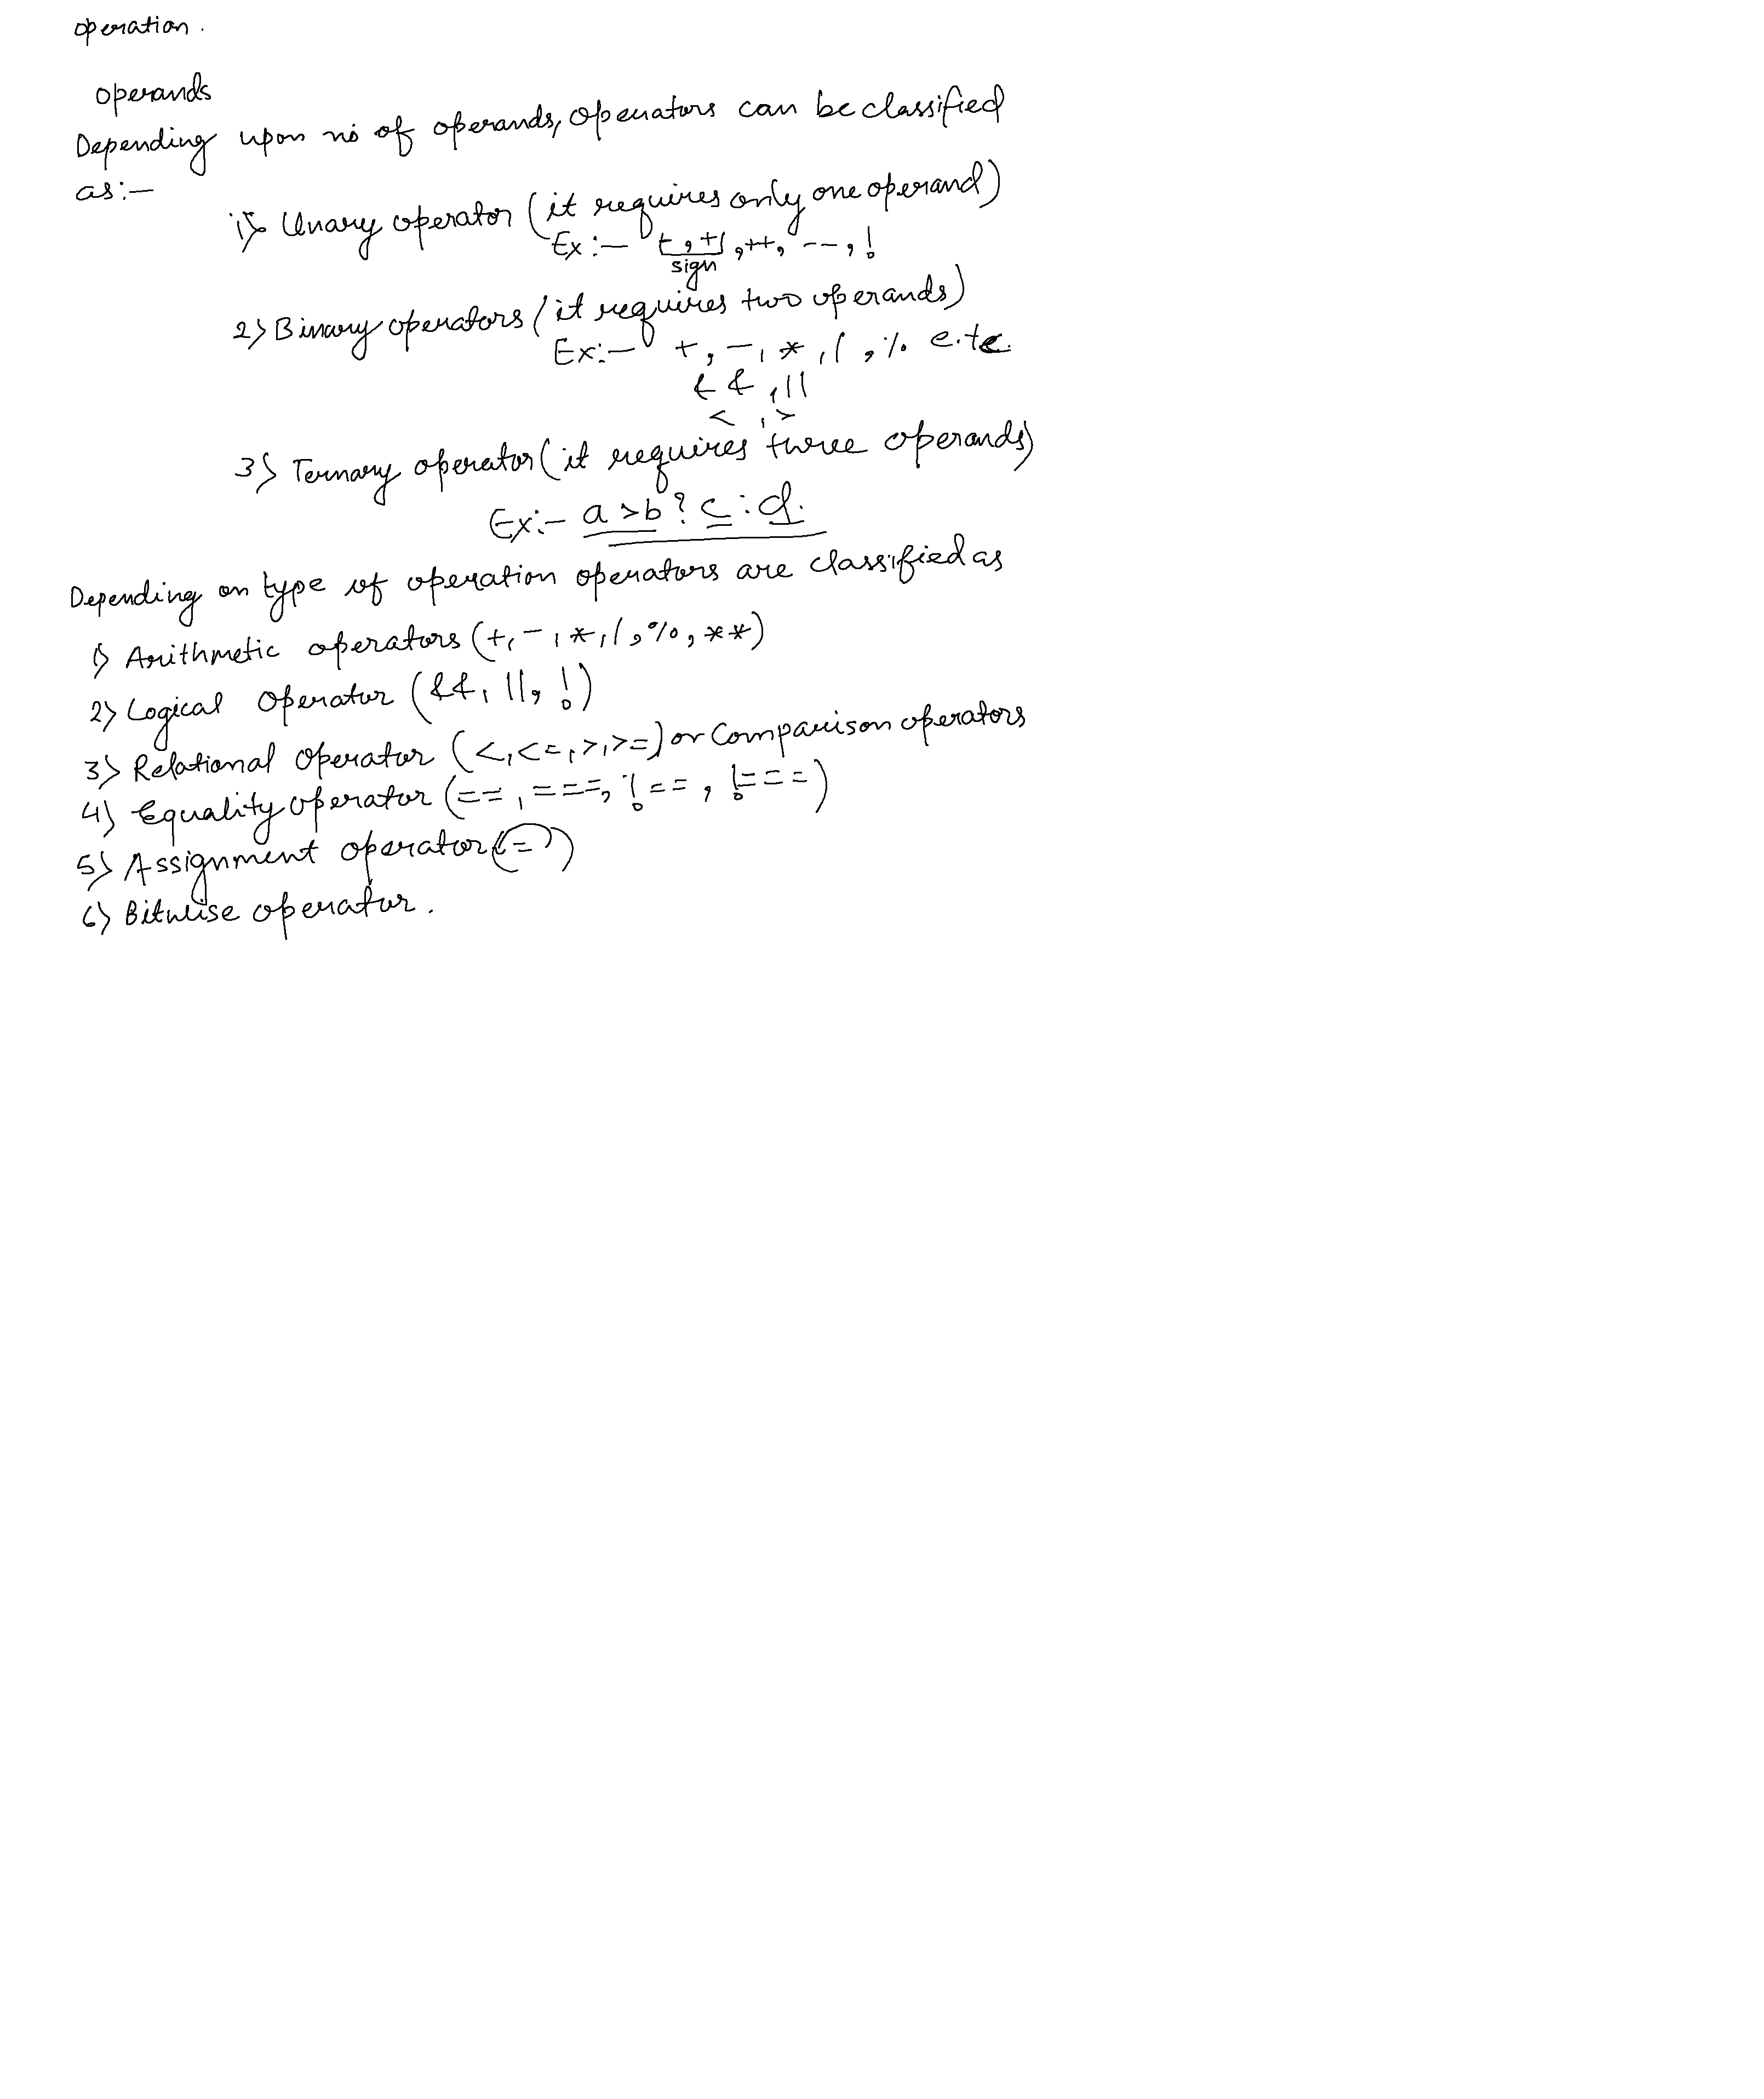 operation.
operands
Depending upon no of operands, operators can be classified
as:-
1) Unary operator (it requires only one operand)
Ex:- , ++, --, !
sign
2) Binary operators (it requires two operands)
Ex:- +, -, *, /, % e.t.c.
&&, ||
<, >
3) Ternary operator (it requires three operands)
Ex:- a>b ? c : d.
Depending on type of operation operators are classified as
1) Arithmetic operators (+, -, *, /, %, **)
2) Logical operator (&&, ||, !)
3) Relational operator (<, <=, >, >=) or Comparison operators
4) Equality operator (==, ===, !==, !===)
5) Assignment operator (=)
6) Bitwise operator.